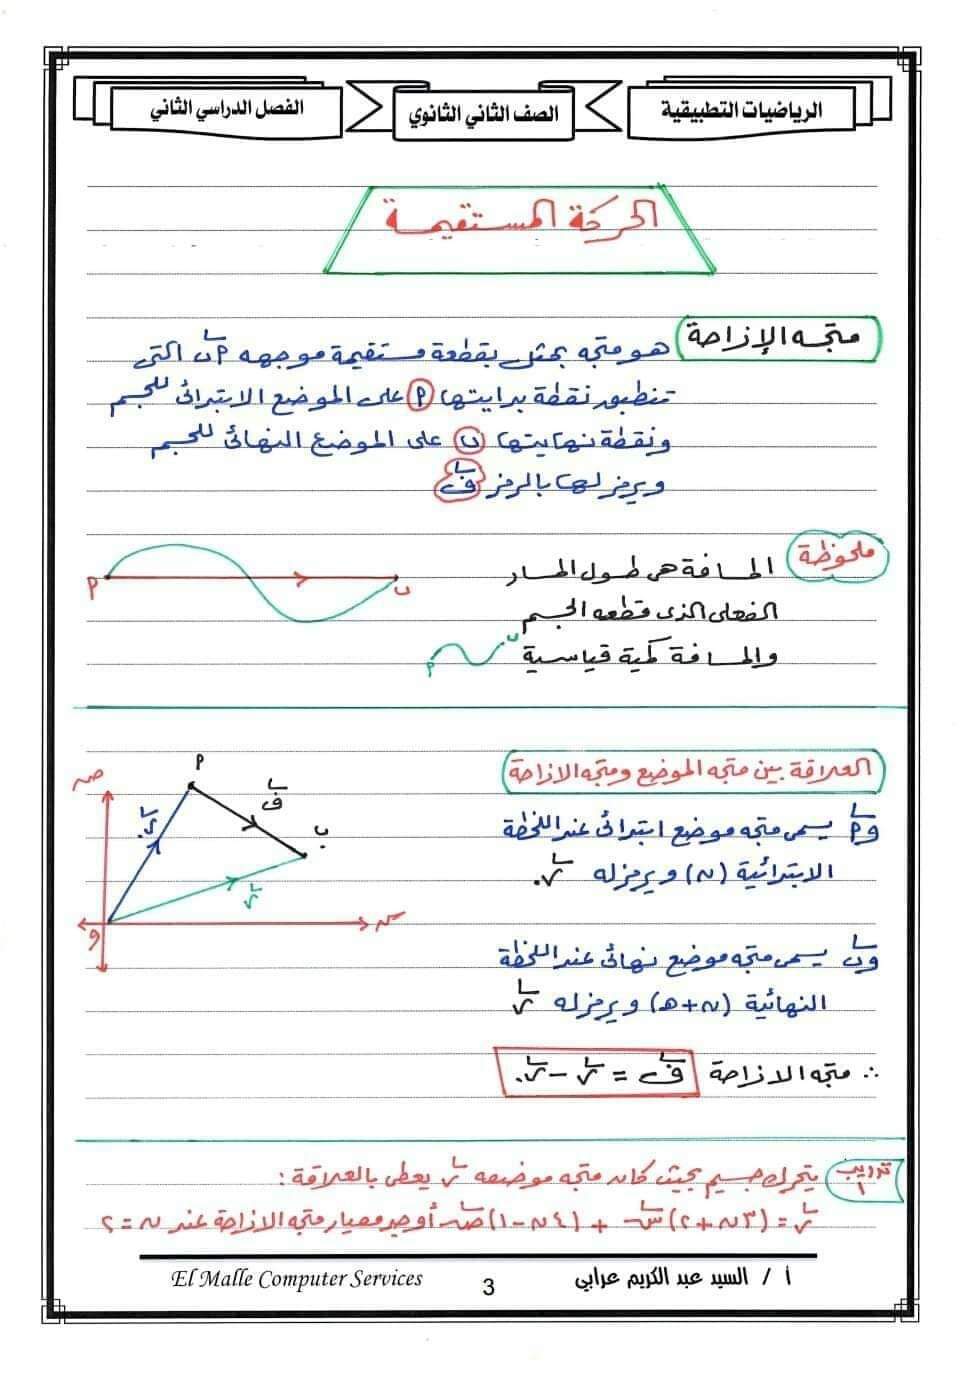 الرياضيات التطبيقية
الصف الثاني الثانوي
الفصل الدراسي الثاني
الحركة المستقيمة
متجه الإزاحة
هو متجه يمثل بقطعة مستقيمة موجهه P ں التى
تنطبق نقطة بدايتها P على الموضع الابتدائى للجسم
ونقطة نهايتها ں على الموضع النهائى للجسم
ويرمز لها بالرمز ف
ملحوظة
المسافة هى طول المسار
الفعلى الذى قطعه الجسم
والمسافة كمية قياسية
P
ں
P
ں
العلاقة بين متجه الموضع ومتجه الازاحة
وP يسمى متجه موضع ابتدائى عند اللحظة
الابتدائية (ن) ويرمز له ر.
وں يسمى متجه موضع نهائى عند اللحظة
النهائية (ن+ه) ويرمز له ر
∴ متجه الازاحة ف = ر - ر.
صـ
P
ف
ب
ر.
ر
سـ
و
تدريب ١
يتحرك جسيم بحيث كان متجه موضعه ر يعطى بالعلاقة :
ر = (٣ن+٢) سـ + (٤ن-١) صـ أوجد معيار متجه الازاحة عند ن = ٢
El Malle Computer Services
3
أ / السيد عبد الكريم عرابي